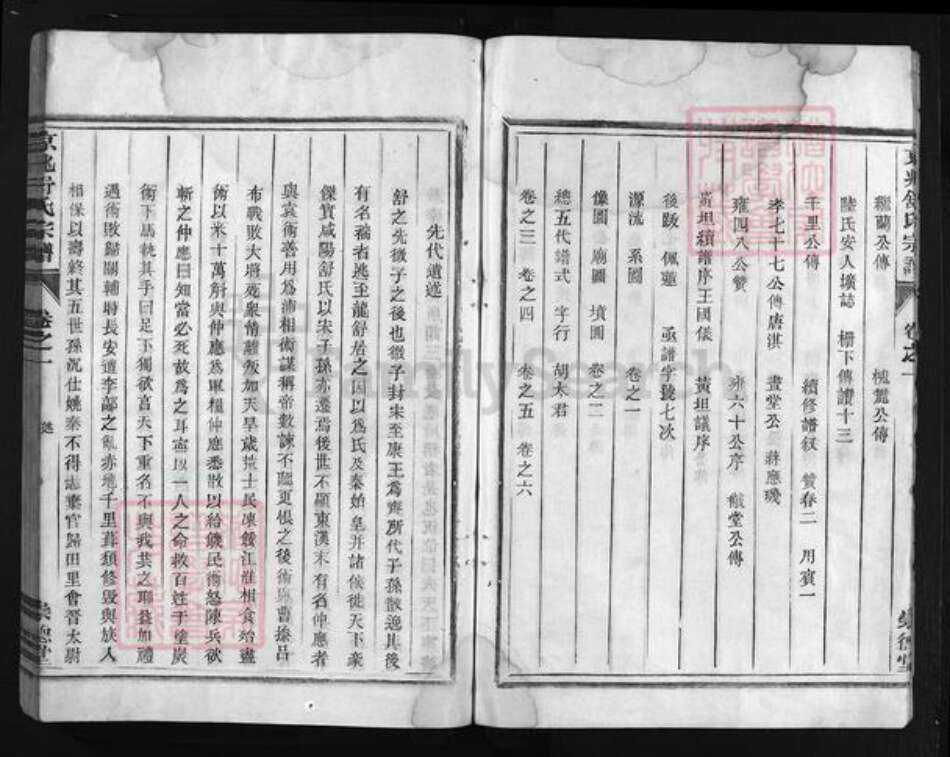 蘭公傳 槐 公傳
陸氏安人壙誌 柵下傳讚十三
千里公傳 續修譜敘 贊春二 用賓一
孝七十七公傳唐淇 晝堂公 蔣應璣
雍四八公贊 雍六十公序 公傳
黃坦續譜序王國儀 黃坦議序
後跋 佩蓮 亟譜字號七次
源流 系圖 卷之一
像圖 廟圖 墳圖 卷之二
總五代譜式 字行 胡太君
卷之三 卷之四 卷之五 卷之六
宗譜 卷之一
先代遺迹
舒之先微子之後也微子封宋至康王為齊所代子孫散逸其後
有名 者逃至龍舒居之因以為氏及秦始皇并諸侯徙天下豪
傑實咸陽舒氏以宋子孫亦遷焉後世不顯東漢末有名仲應者
與袁術善用為沛相術謀稱帝數諫不聽更恨之後術與曹操呂
布戰敗大將死衆情離叛加天旱歲荒士民凍餒江淮相食殆盡
術以米十萬斛與仲應為軍糧仲應悉散以給饑民術怒陳兵欲
斬之仲應曰知當必死故為之耳寧以一人之命救百姓于塗炭
術下馬執其手曰足下獨欲享天下重名不與我共之耶益加禮
遇術敗歸關輔時長安遭李 之亂赤地千里葺類修毀與族人
相保以壽終其五世孫沉仕姚秦不得志棄官歸田里會晉太尉
氏宗譜 卷之一
FamilySearch